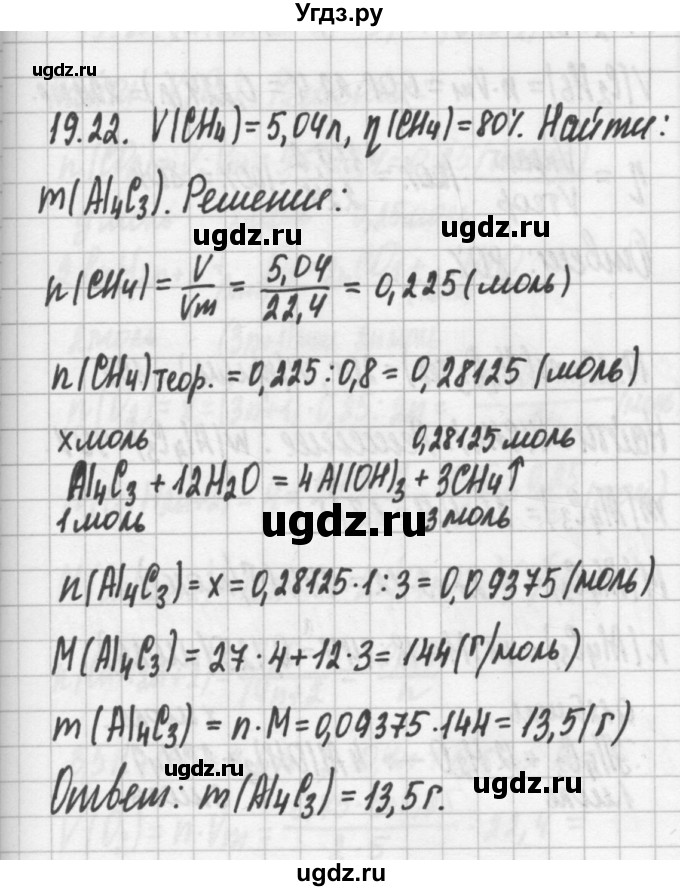 Угдз.ру
ugdz.ru
19.22. V(CH₄)=5,04л, η(CH₄)=80%. Найти:
m(Al₄C₃). Решение:
ugdz.ru
ugdz.ru
n(CH₄)=V/Vm = 5,04/22,4 = 0,225(моль)
n(CH₄)теор. = 0,225:0,8 = 0,28125 (моль)
x моль 0,28125 моль
Al₄C₃ + 12H₂O = 4Al(OH)₃ + 3CH₄↑
1 моль 3 моль
ugdz.ru
n(Al₄C₃) = x = 0,28125·1:3 = 0,09375(моль)
M(Al₄C₃) = 27·4+12·3 = 144(г/моль)
m(Al₄C₃) = n·M = 0,09375·144 = 13,5(г)
ugdz.ru
ugdz.ru
Ответ: m(Al₄C₃) = 13,5г.
ugdz.ru